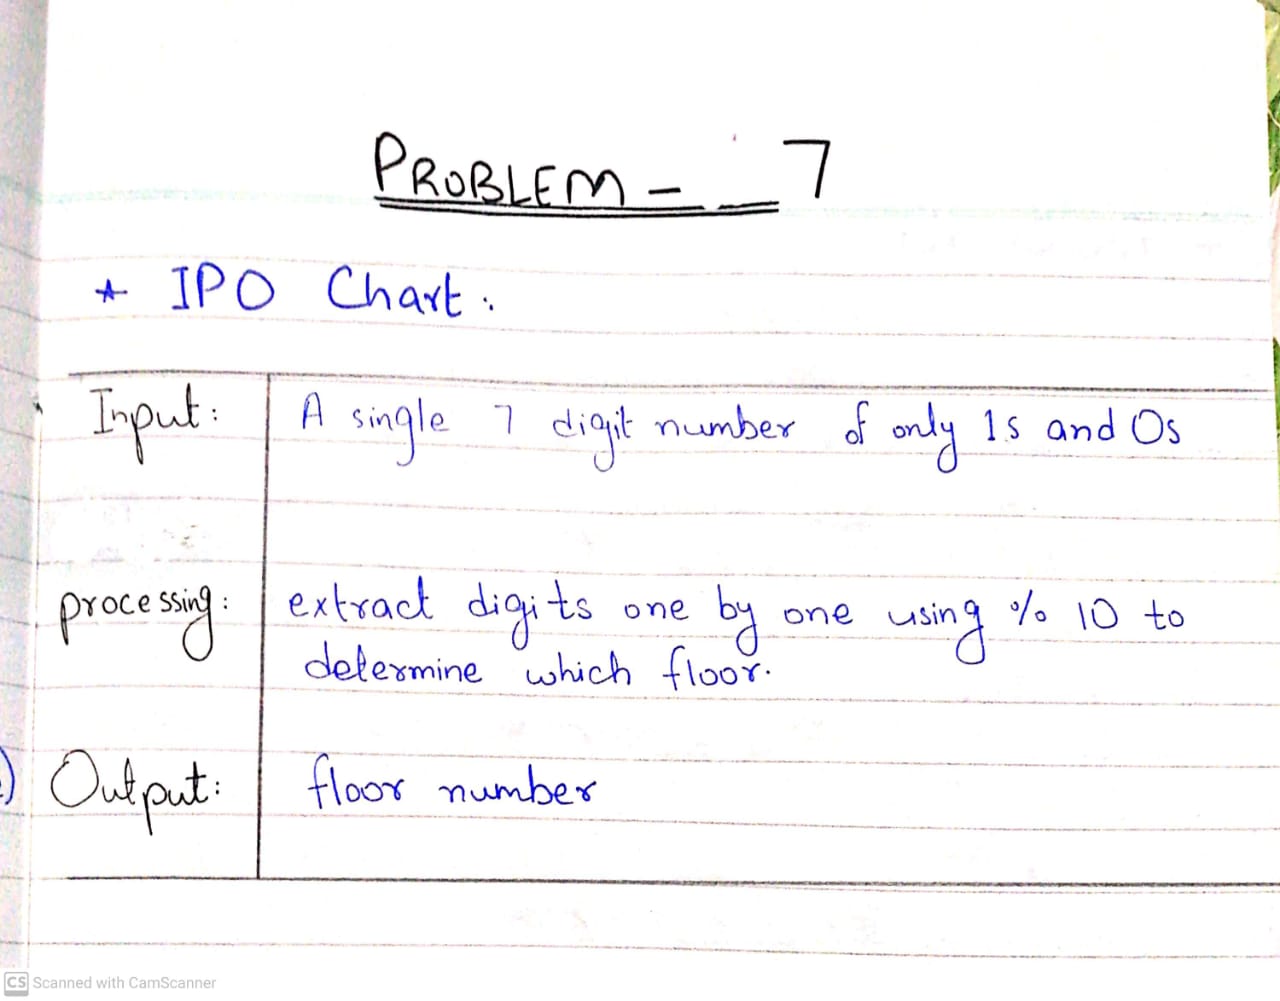 PROBLEM - 7
* IPO Chart :
Input: A single 7 digit number of only 1s and 0s
processing: extract digits one by one using % 10 to
determine which floor.
Output: floor number
CS Scanned with CamScanner